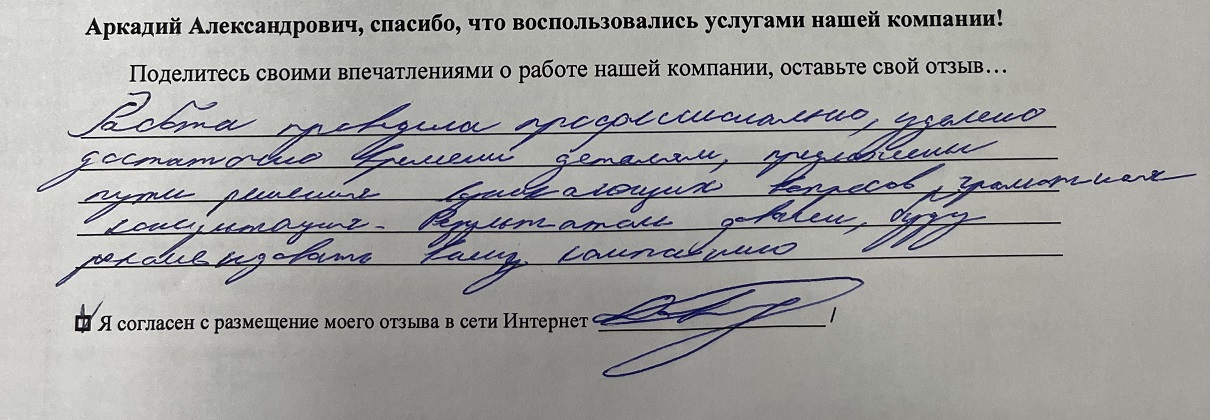 Аркадий Александрович, спасибо, что воспользовались услугами нашей компании!
Поделитесь своими впечатлениями о работе нашей компании, оставьте свой отзыв…
Работа проведена профессионально, уделено
достаточно времени деталям, предложены
пути решения возникающих вопросов, грамотная
консультация. Результатом доволен, буду
рекомендовать вашу компанию
Я согласен с размещение моего отзыва в сети Интернет